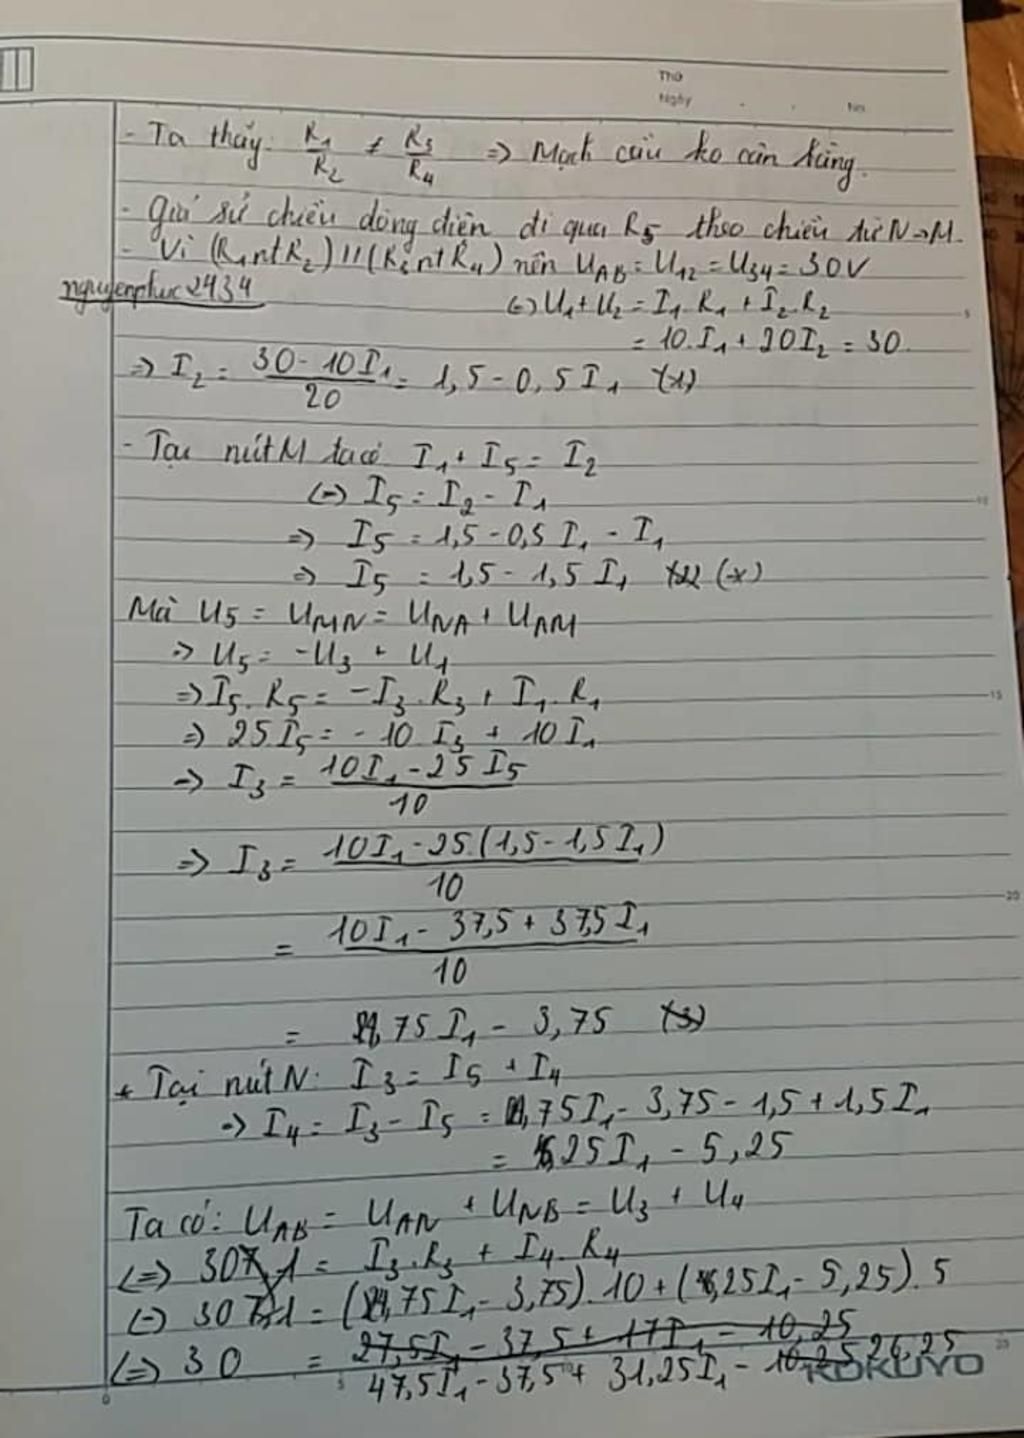 Thứ
Ngày . . No.
- Ta thấy: R1/R2 ≠ R3/R4 => Mạch cầu ko cân bằng.
- Giả sử chiều dòng điện đi qua R5 theo chiều từ N→M.
- Vì (R1ntR2)//(R3ntR4) nên UAB = U12 = U34 = 30V
nguyenphuc2434
(=) U1 + U2 = I1.R1 + I2.R2
= 10.I1 + 20I2 = 30
=> I2 = (30 - 10I1)/20 = 1,5 - 0,5I1 (1)
- Tại nút M ta có I1 + I5 = I2
(=) I5 = I2 - I1
=> I5 = 1,5 - 0,5I1 - I1
=> I5 = 1,5 - 1,5I1 (*)
Mà U5 = UMN = UNA + UAM
=> U5 = -U3 + U1
=> I5.R5 = -I3.R3 + I1.R1
=> 25I5 = -10I3 + 10I1
=> I3 = (10I1 - 25I5)/10
=> I3 = (10I1 - 25.(1,5 - 1,5I1))/10
= (10I1 - 37,5 + 37,5I1)/10
= 4,75I1 - 3,75 (3)
+ Tại nút N: I3 = I5 + I4
=> I4 = I3 - I5 = 4,75I1 - 3,75 - 1,5 + 1,5I1
= 6,25I1 - 5,25
Ta có: UAB = UAN + UNB = U3 + U4
(=) 30 = I3.R3 + I4.R4
(=) 30 = (4,75I1 - 3,75).10 + (6,25I1 - 5,25).5
27,5I1 - 37,5 + 17I1 - 10,25
(=) 30 = 47,5I1 - 37,5 + 31,25I1 - 26,25
KOKUYO